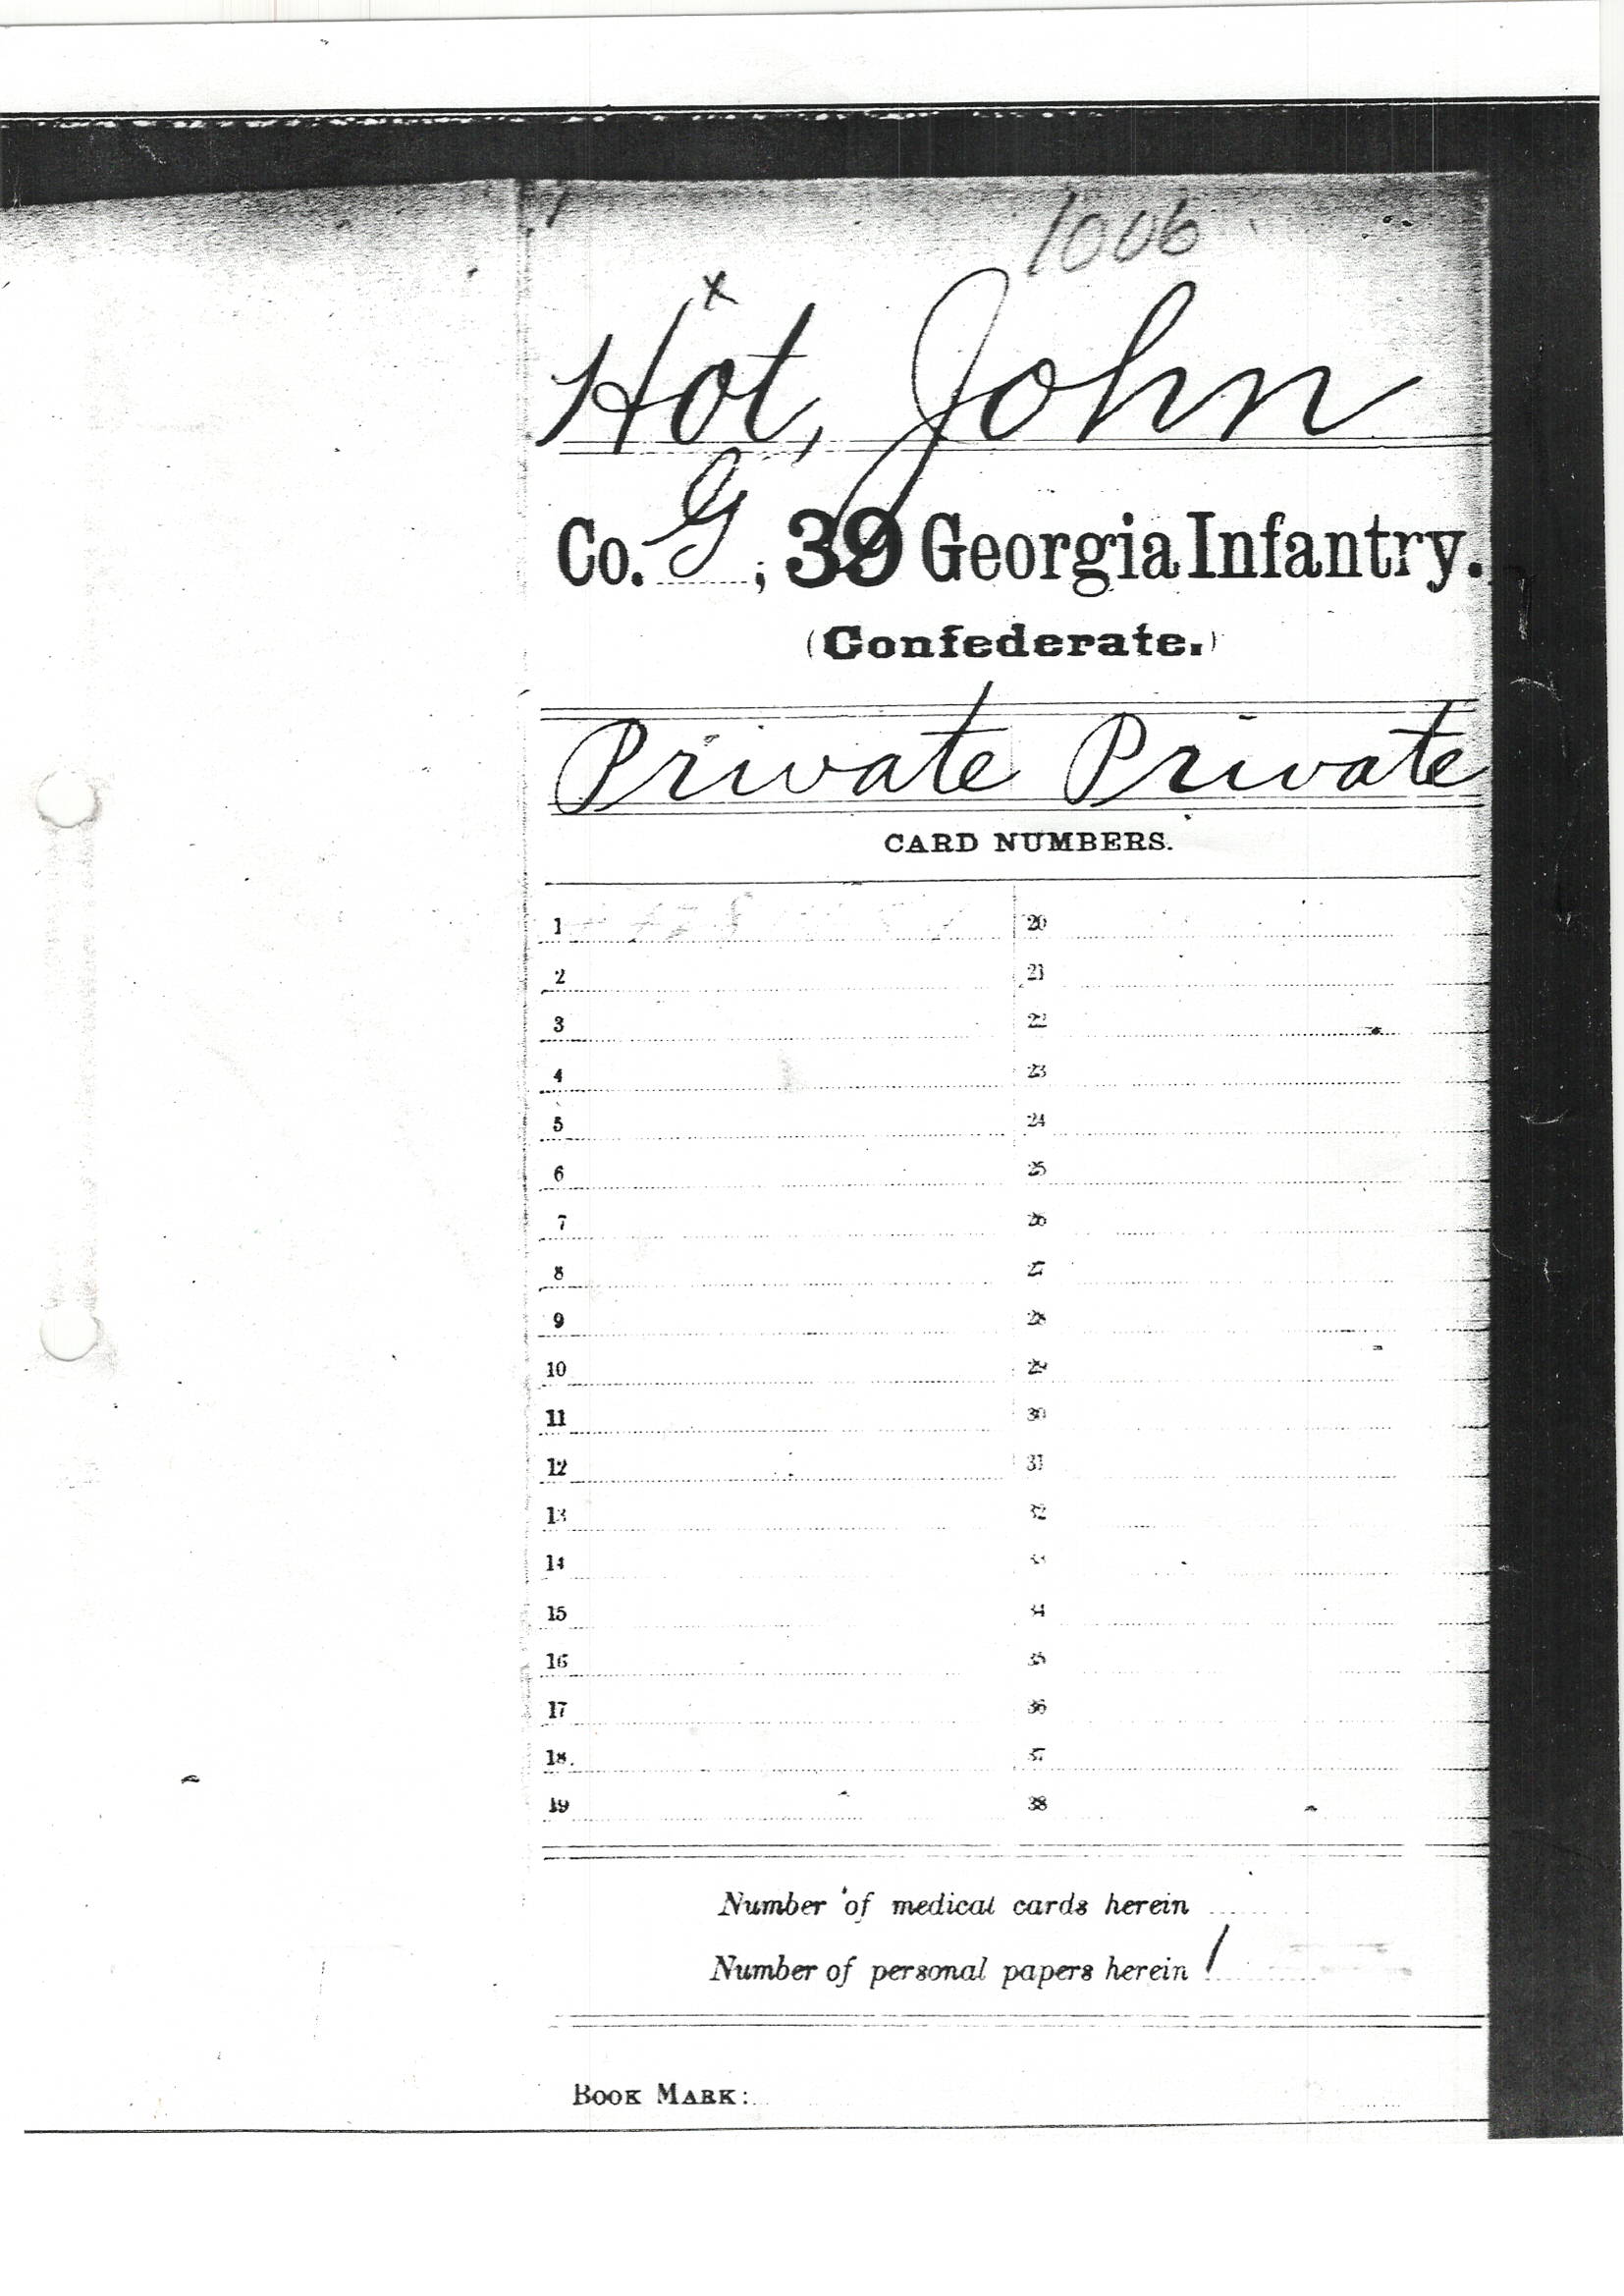 1006
x
Hot, John
Co. G, 39 Georgia Infantry.
(Confederate.)
Private Private
CARD NUMBERS.
1 20
2 21
3 22
4 23
5 24
6 25
7 26
8 27
9 28
10 29
11 30
12 31
13 32
14 33
15 34
16 35
17 36
18 37
19 38
Number of medical cards herein
Number of personal papers herein 1
BOOK MARK: